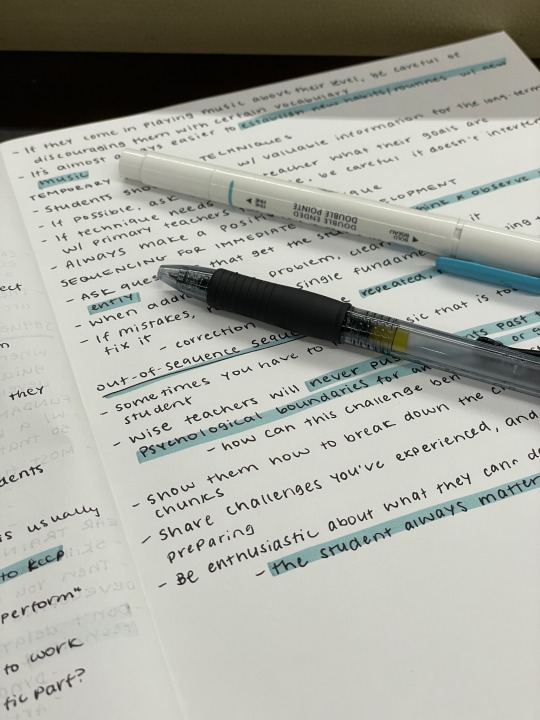 - If they come in playing music above their level, be careful of
discouraging them with certain vocabulary
- It's almost always easier to establish new habits/routines w/ new
music
TEMPORARY TECHNIQUES
- Students sho w/ valuable information for the long-term
If possible, ask teacher what their goals are
- If technique needs be careful it doesn't interfere
w/ primary teachers que
- ALWAYS make a posi think & observe
SEQUENCING FOR IMMEDIATE DEVELOPMENT
- ASK que that get the stu it
entry
- When addr problem, clear ing t
- If mistakes, single fundame
fix it - correction repeated,
out-of-sequence seque
- sometimes you have to sic that is to
student
- Wise teachers will never pu 's past
psychological boundaries for an or s
- how can this challenge ben
- Show them how to break down the c
chunks
- Share challenges you've experienced, and
preparing
- Be enthusiastic about what they can do
- the student always matter
DOUBLE ENDED
DOUBLE POINTE
FINE
FINE
BOLD
ect
n
they
dents
is usually
to keep
perform"
to work
tic part?